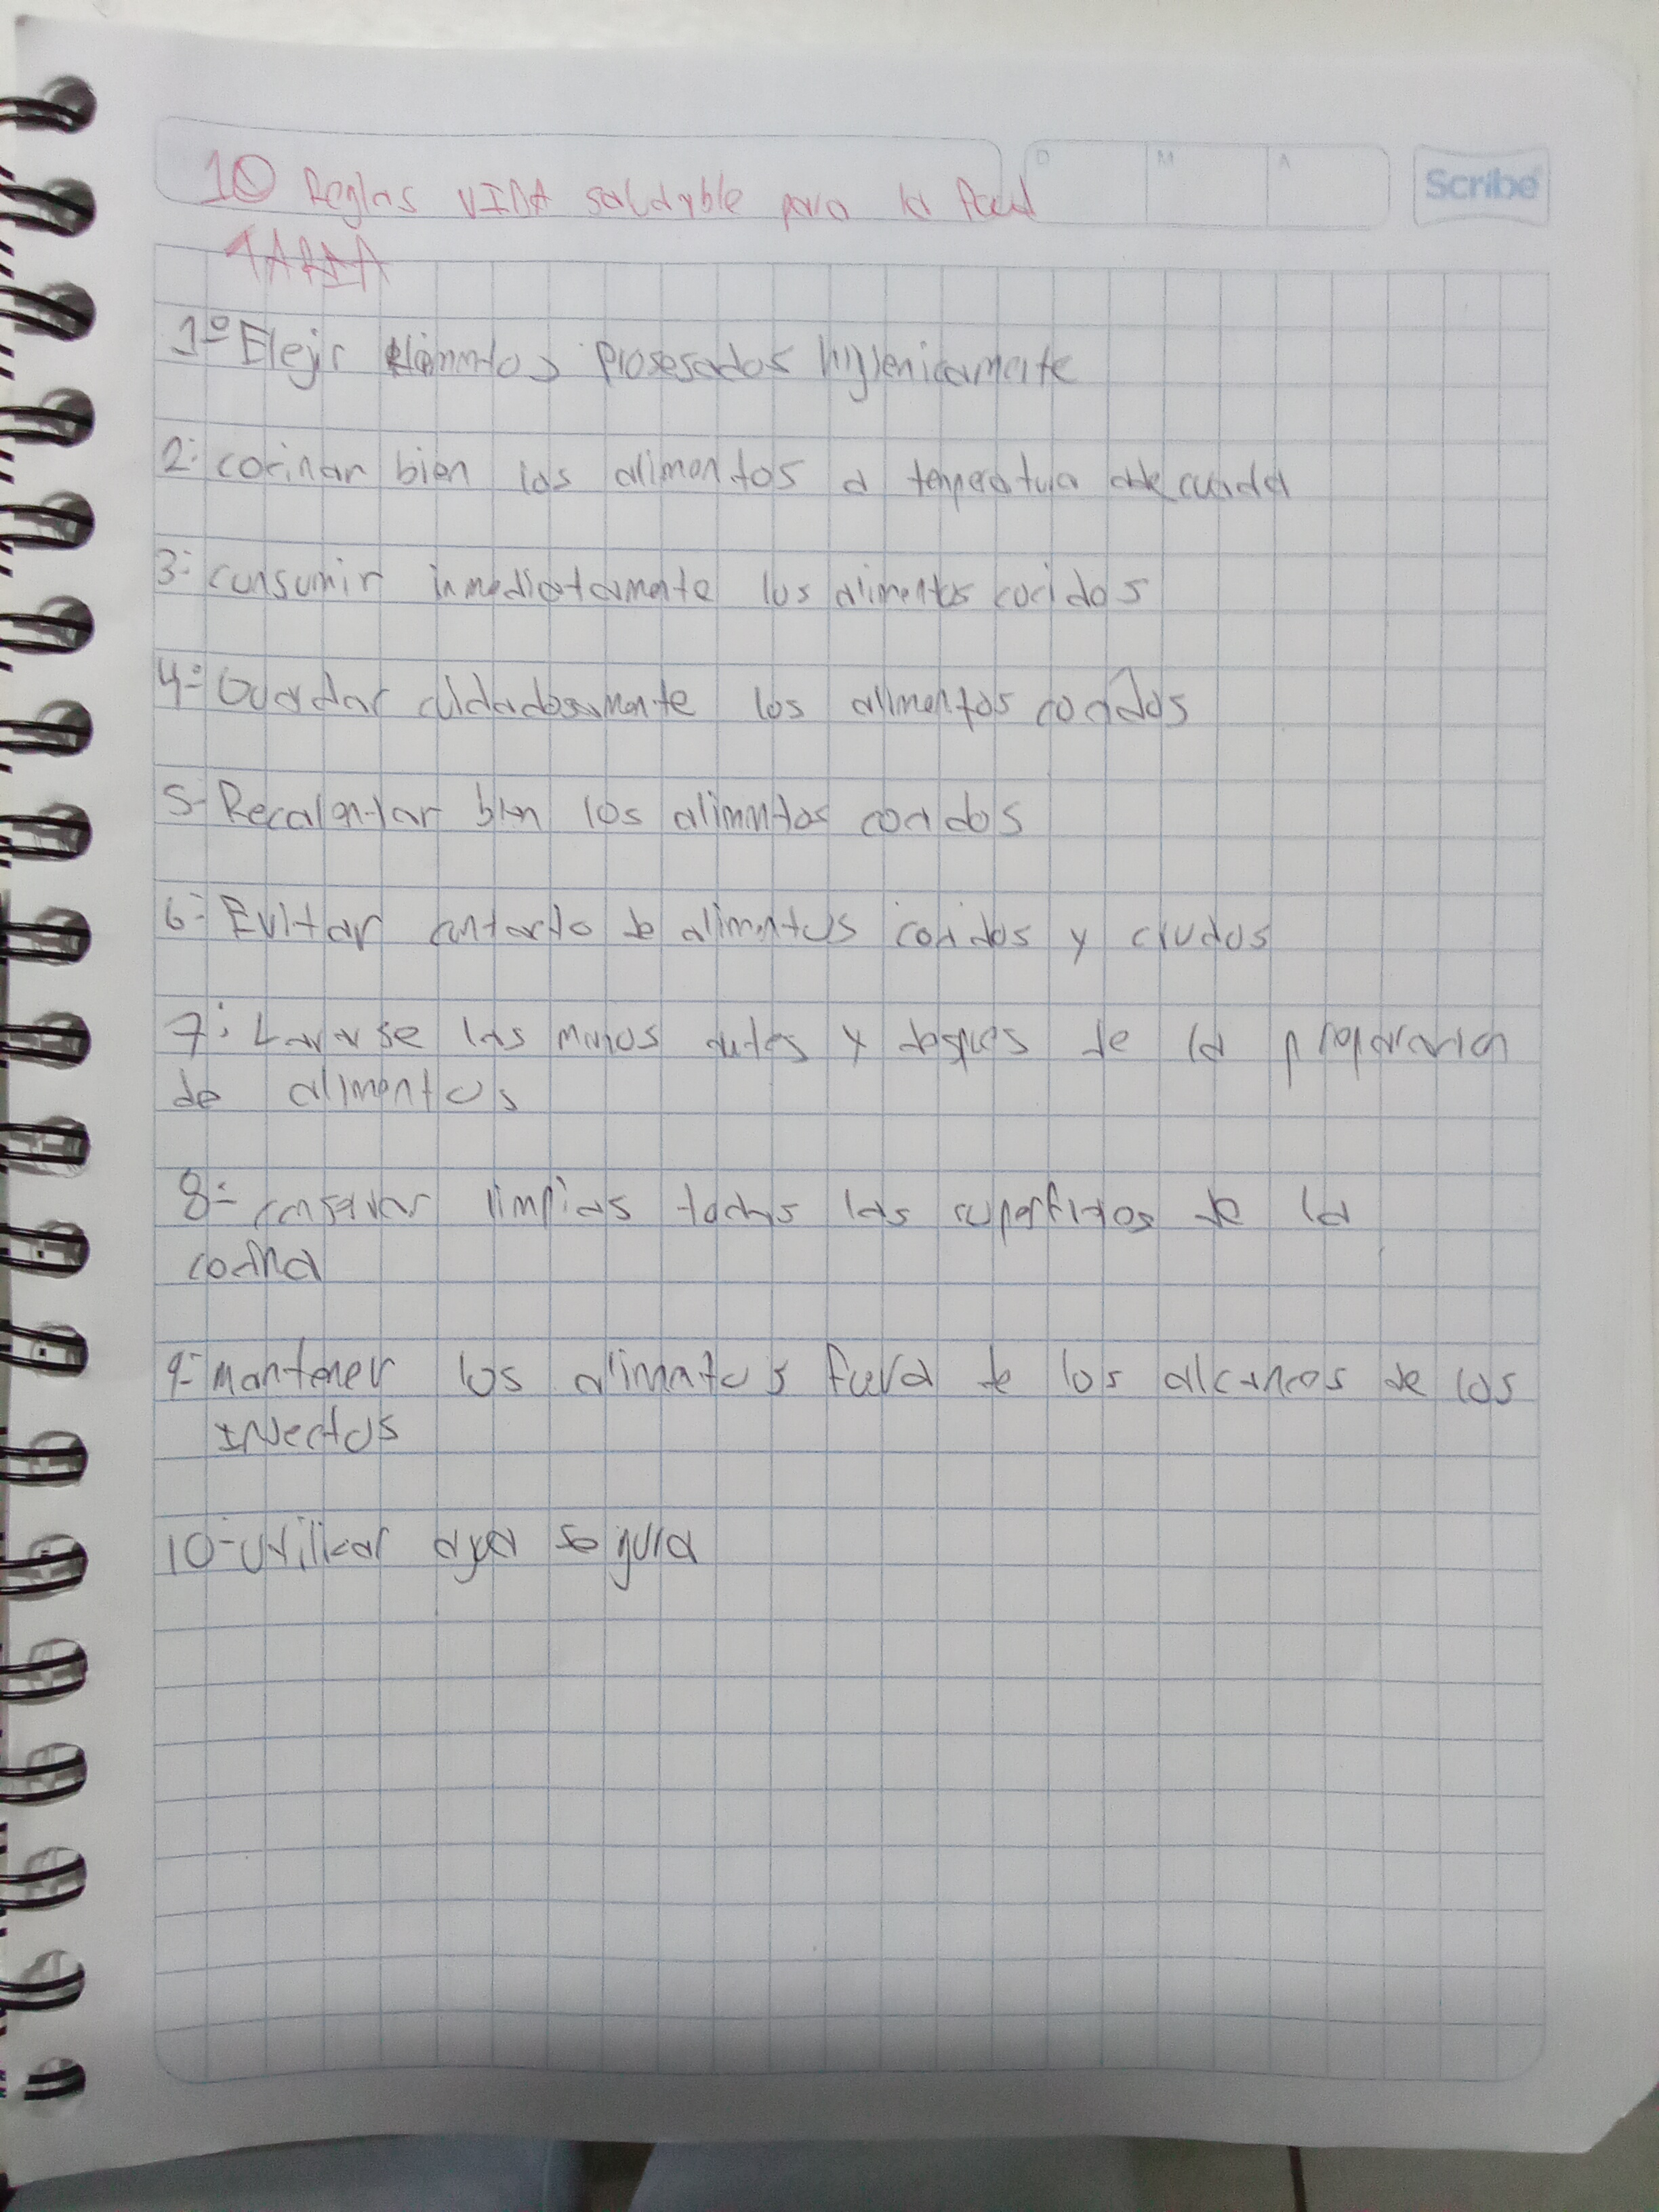 10 Reglas VIDA saludable para la
D M A
Scribe
TAREA
1º Elejir Alimentos prosesados higienicamente
2: cocinar bien los alimentos a temperatura adecuada
3: consumir inmediatamente los alimentos cocidos
4: Guardar cuidadosamente los alimentos cocidos
5- Recalentar bien los alimentos cocidos
6- Evitar contacto de alimentos cocidos y crudos
7: Lavarse las manos antes y despues de la preparacion
de alimentos
8- conservar limpias todas las superficies de la
cocina
9- mantener los alimentos fuera de los alcances de los
insectos
10- utilizar agua segura